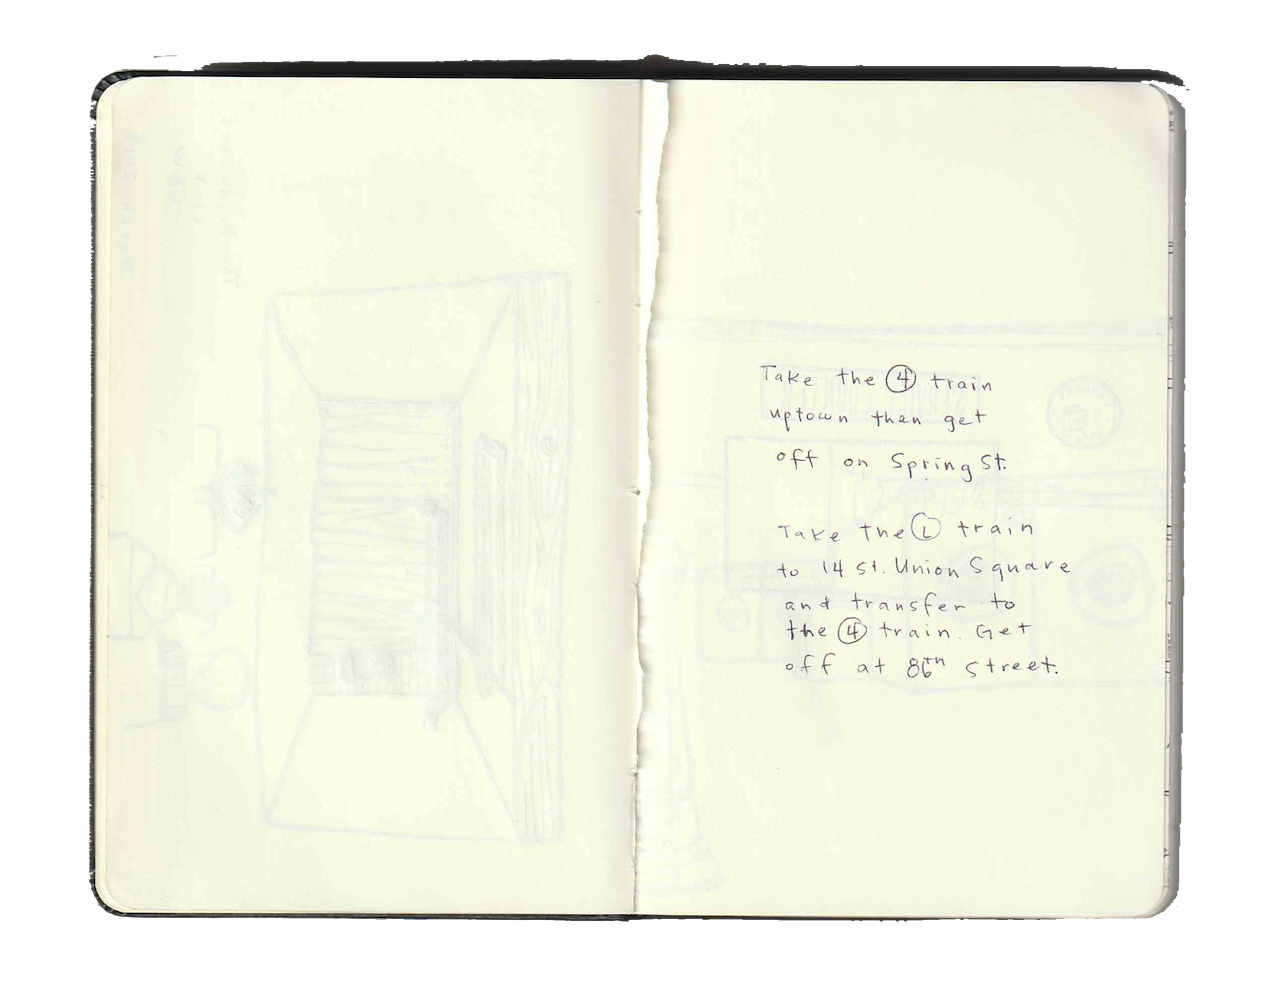 Take the 4 train
uptown then get
off on Spring St.
Take the L train
to 14 St. Union Square
and transfer to
the 4 train. Get
off at 86th Street.